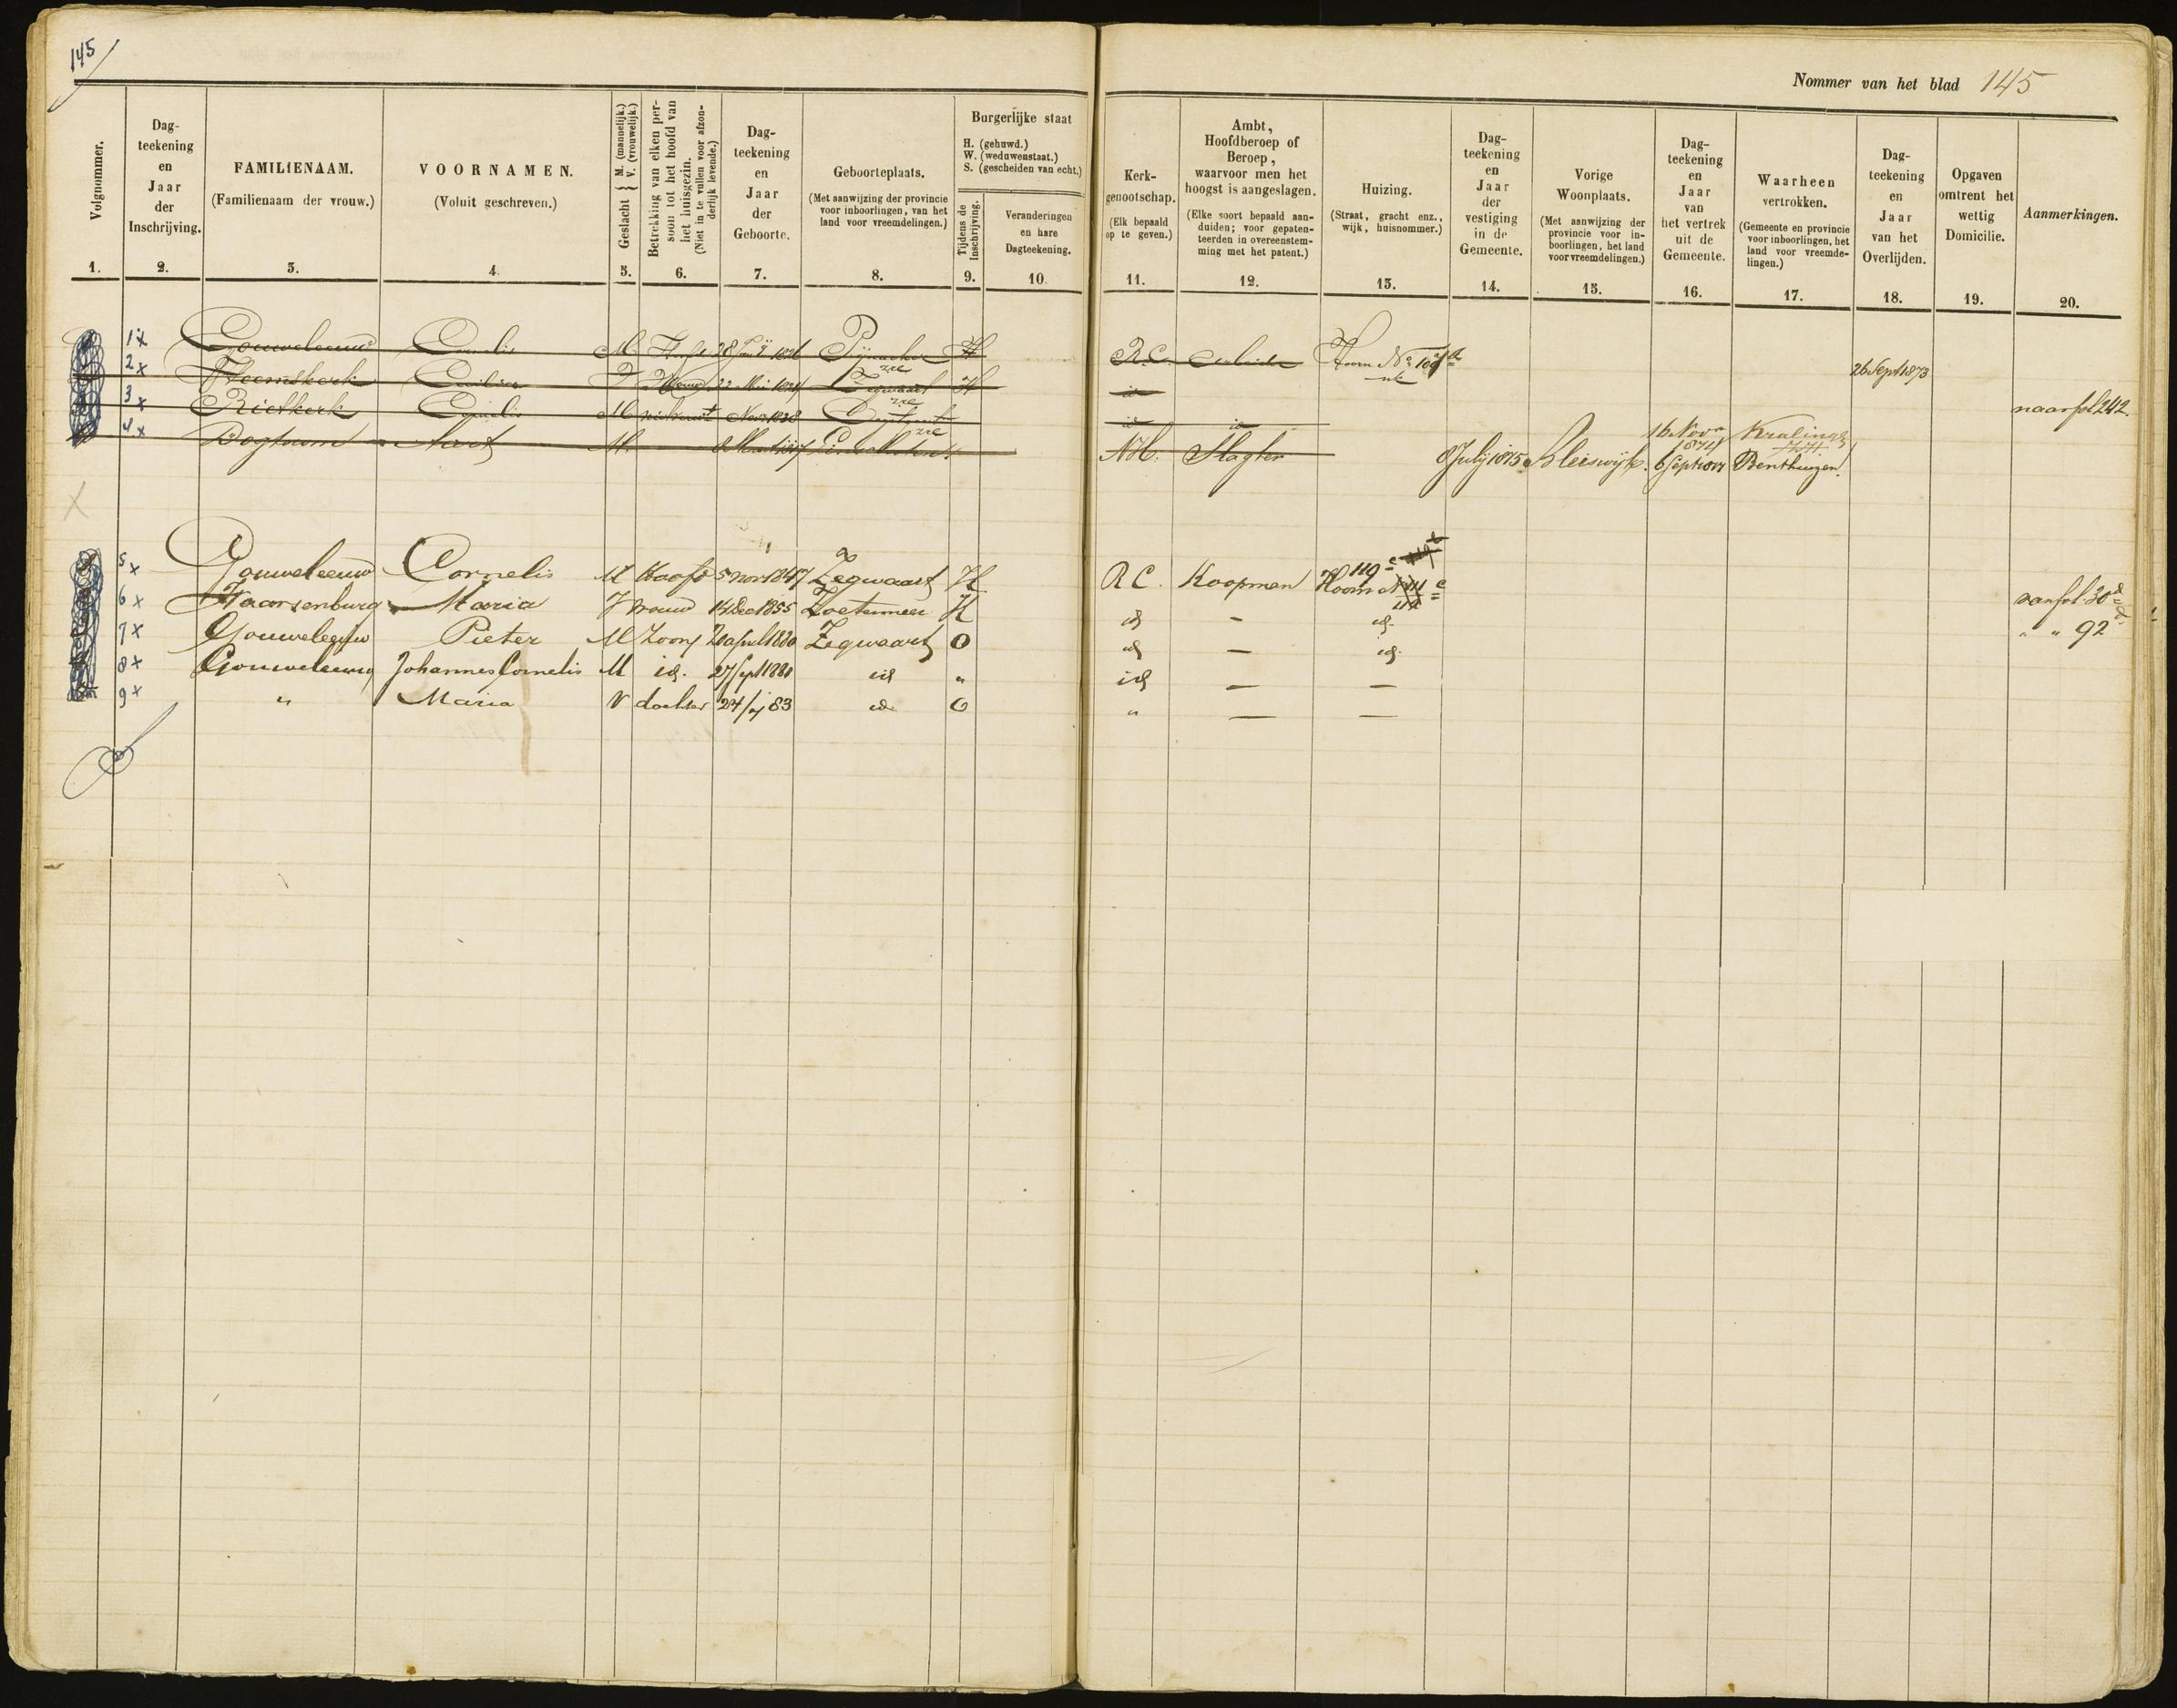 145
Nommer van het blad 145
Volgnommer.
1.
Dag-
teekening
en
Jaar
der
Inschrijving.
2.
FAMILIENAAM.
(Familienaam der vrouw.)
3.
VOORNAMEN.
(Voluit geschreven.)
4.
Geslacht { M. (mannelijk.)
V. (vrouwelijk.)
5.
Betrekking van elken per-
soon tot het hoofd van
het huisgezin.
(Niet in te vullen voor afzon-
derlijk levende.)
6.
Dag-
teekening
en
Jaar
der
Geboorte.
7.
Geboorteplaats.
(Met aanwijzing der provincie
voor inboorlingen, van het
land voor vreemdelingen.)
8.
Burgerlijke staat
H. (gehuwd.)
W. (weduwenstaat.)
S. (gescheiden van echt.)
Tijdens de
Inschrijving.
9.
Veranderingen
en hare
Dagteekening.
10.
Kerk-
genootschap.
(Elk bepaald
op te geven.)
11.
Ambt,
Hoofdberoep of
Beroep,
waarvoor men het
hoogst is aangeslagen.
(Elke soort bepaald aan-
duiden; voor gepaten-
teerden in overeenstem-
ming met het patent.)
12.
Huizing.
(Straat, gracht enz.,
wijk, huisnommer.)
13.
Dag-
teekening
en
Jaar
der
vestiging
in de
Gemeente.
14.
Vorige
Woonplaats.
(Met aanwijzing der
provincie voor in-
boorlingen, het land
voor vreemdelingen.)
15.
Dag-
teekening
en
Jaar
van
het vertrek
uit de
Gemeente.
16.
Waarheen
vertrokken.
(Gemeente en provincie
voor inboorlingen, het
land voor vreemde-
lingen.)
17.
Dag-
teekening
en
Jaar
van het
Overlijden.
18.
Opgaven
omtrent het
wettig
Domicilie.
19.
Aanmerkingen.
20.
1x Gouweleeuw Cornelis M Pijnacker H R.C. Hoorn No
2x Heemskerk V Vrouw Zegwaart H id 26 Sept 1873
3x Rietkerk Cornelis M Nov 1838 id id naar fol 242
16 Nov 1874 Kralingen
4x Aart M. N.H. Slagter 8 July 1875 Bleiswijk. 6 Sept Benthuizen.
5x Gouweleeuw Cornelis M Hoofd 5 nov 1847 Zegwaart H R C. Koopman 119 c Hoorn
6x Haarsenburg Maria V vrouw 14 Dec 1855 Zoetermeer H id - id. van fol. 30
7x Gouweleeuw Pieter M Zoon 20 april 1880 Zegwaart O id - id. " " 92
8x Gouweleeuw Johannes Cornelis M id. 27 Sept 1881 id " id - -
9x " Maria V dochter 83 id O " - -